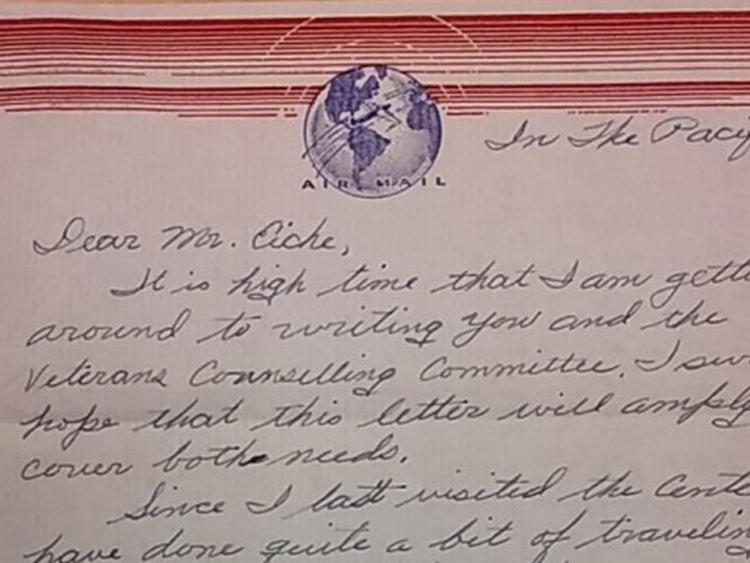 AIR MAIL
In The Pacif
Dear Mr. Eiche,
It is high time that I am getti
around to writing you and the
Veterans Counselling Committee. I sure
hope that this letter will amply
cover both needs.
Since I last visited the Cente
have done quite a bit of traveling